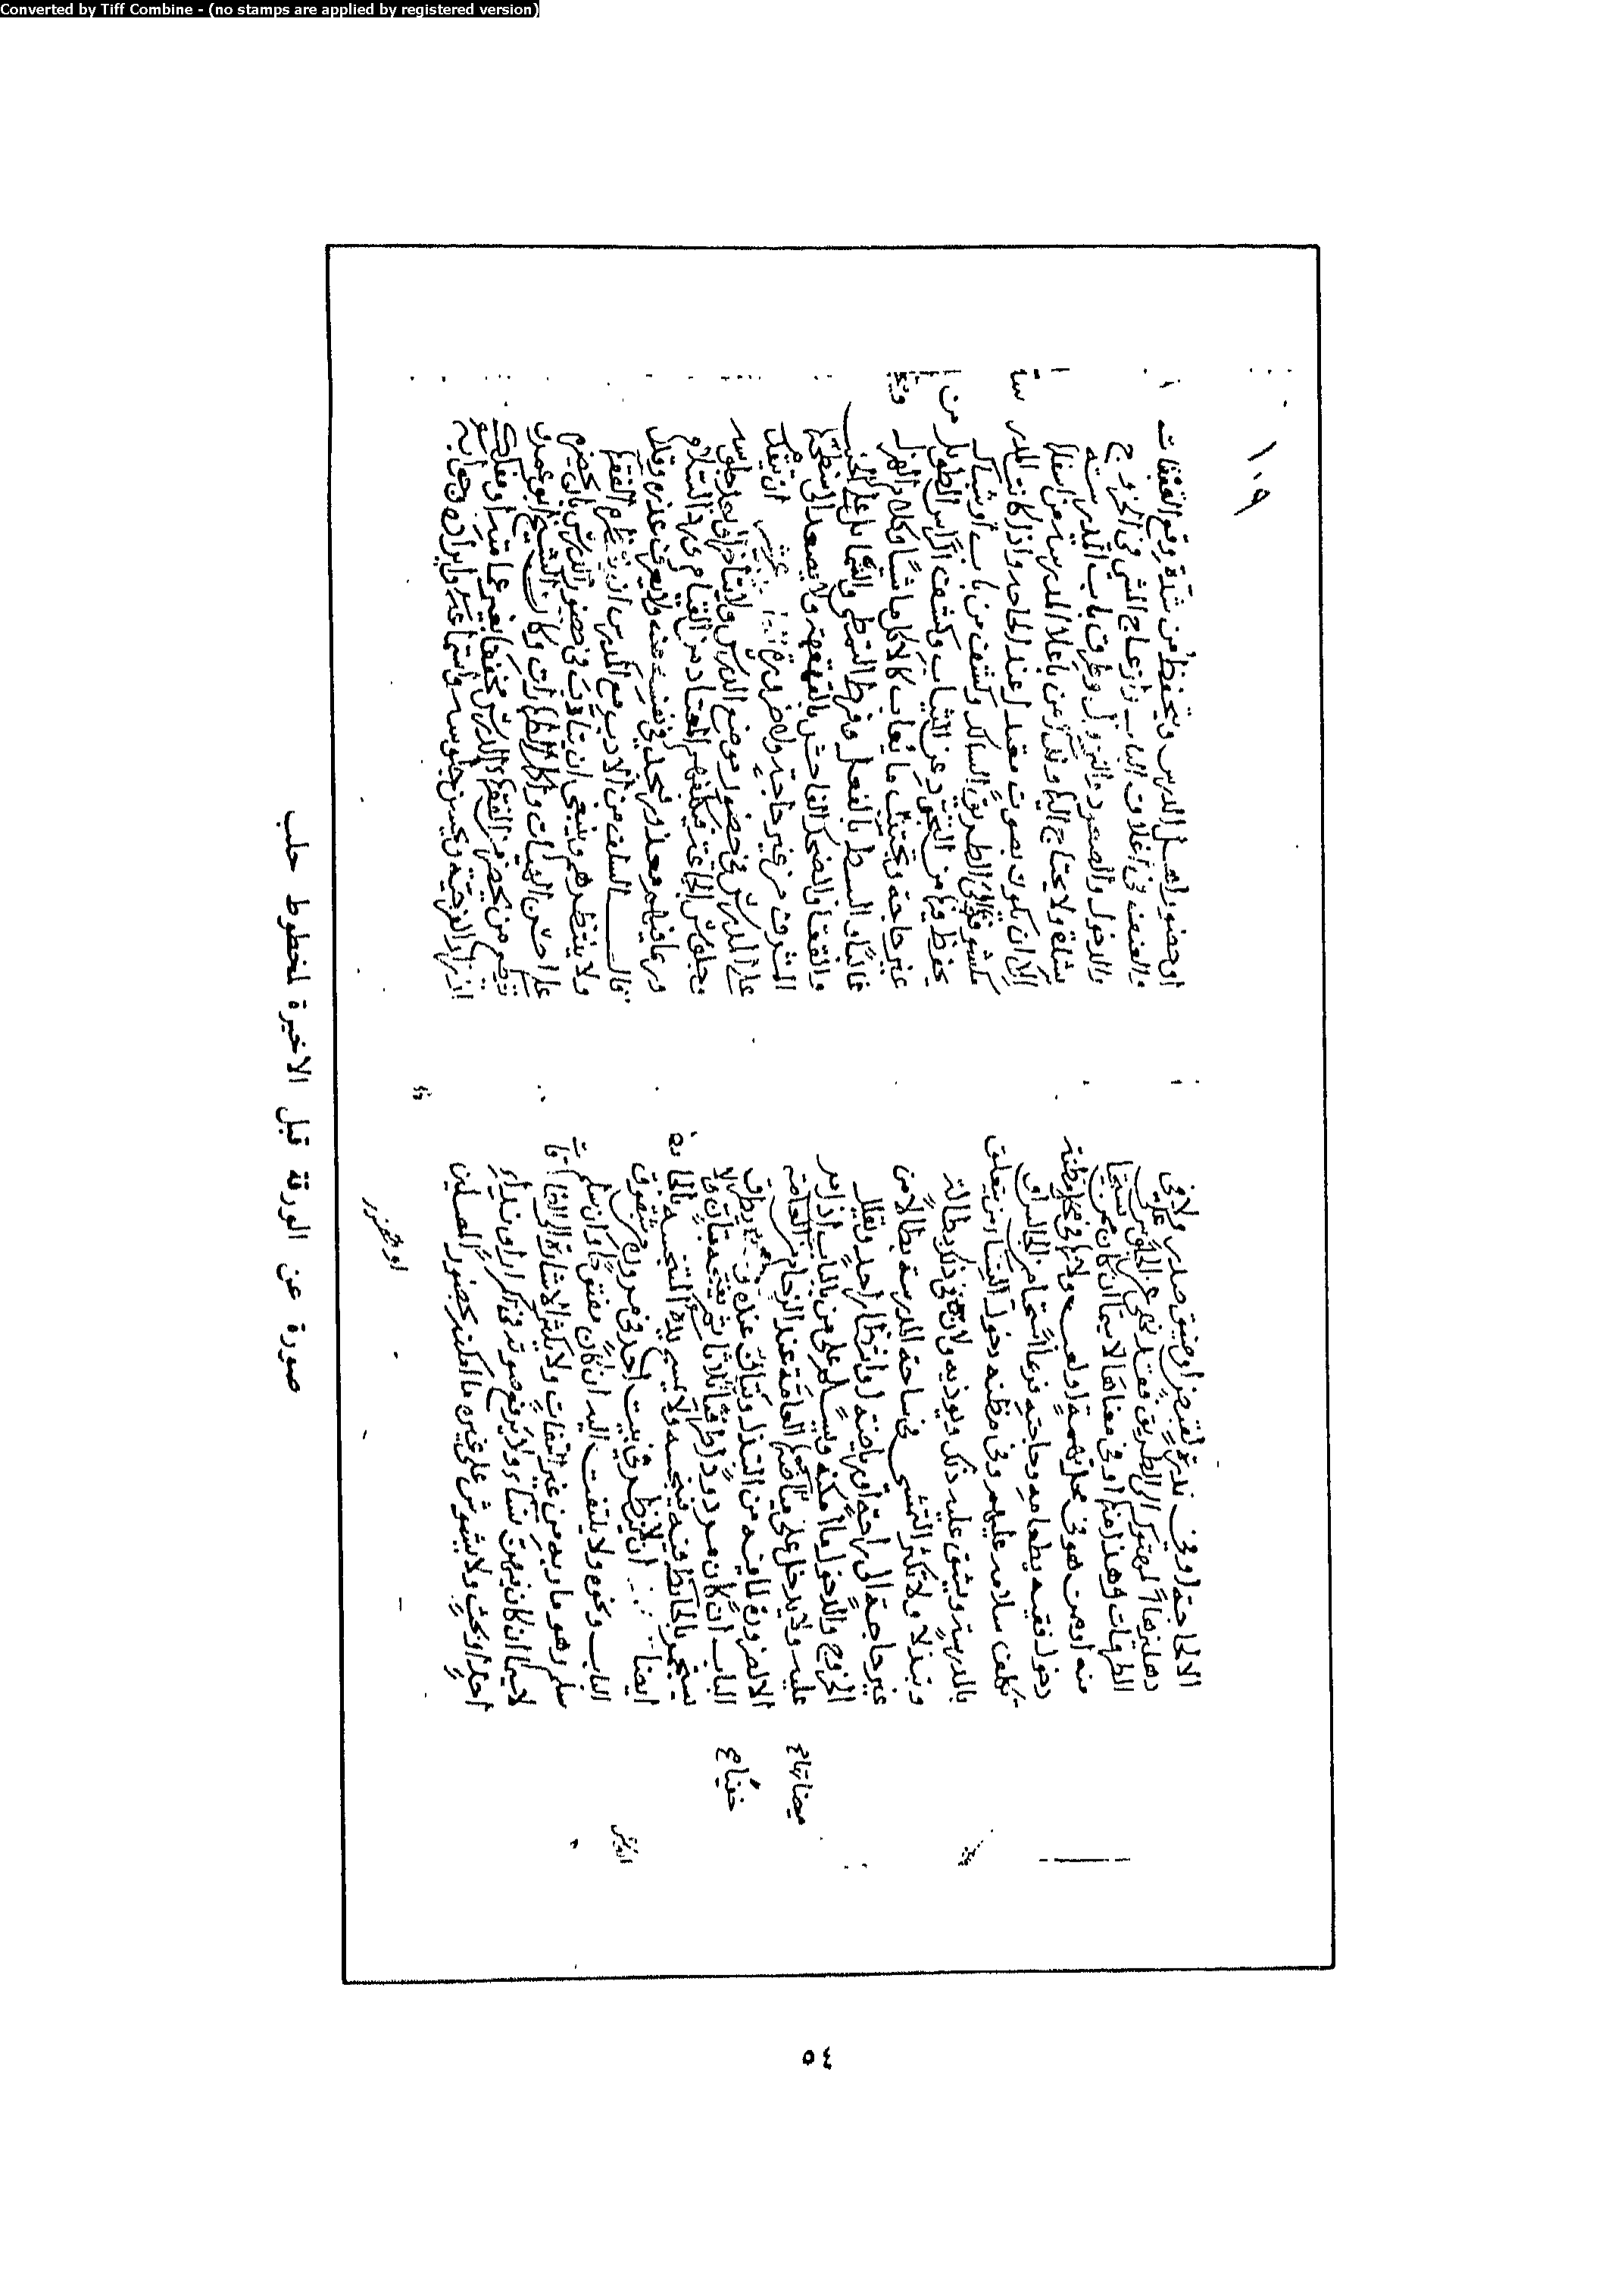 Converted by Tiff Combine - (no stamps are applied by registered version)
الا لحاجة او في ندرة لقبض او ضيق صدر ولا في
دهليزها المهتوك الى الطريق فقد نهي عن الجلوس على
الطرقات وهذا منها او في معناها لا سيما ان كان ممن يستحيا
منه او ممن هو في محل تهمة او لعب ولأنها في مظنة
دخول فقيه بطعامه وحاجته فربما استحيا من الجالس او
تكلف سلامه عليهم وفي مظنة دخول النساء من يتعلق
بالمدرسة ويشق عليه ذلك ويؤذيه ولان في ذلك بطالة
وتبذلا ولا يكثر التمشي في ساحة المدرسة بطالا من
غير حاجة الى راحة او رياضة او انتظار احد ويقلل
الخروج والدخول ما امكنه ويسلم على من بالباب اذا مر
عليه ولا يدخل على ميضاتها العامة عند الزحام من العامة
الا لضرورة لما فيه من التبذل ويتأنى عنده ويطرق
الباب ان كان مردودا طرقا خفيفا ثلاثا ثم يفتحه بتأن ولا
يستجمر بالحائط فينجسه ولا يمسح يده النجسة بالحائط
ايضا ان لا ينظر في بيت احد في مروره من شقوق
الباب ونحوه ولا يلتفت اليه ان كان مفتوحا وان سلم
سلم وهو مار به من غير التفات ولا يكثر الاشارة الى الطاقات
لا سيما ان كان فيهن نساء ولا يرفع صوته في تكرار او نداء
احد او بحث ولا يشوش على غيره ما امكنه بحضور المصلين
او حضور
ميضاتها
خفيفا
١٠٩
او حضور اهل الدرس ويتحفظ من شدة وقع القبقاب
والعنف في اغلاق الباب وازعاج المشي في الخروج
والدخول والصعود والنزول وطرق باب المدرسة
بشدة ولا يحتاج اليها ونداء من باعلا المدرسة من اسفلها
الا ان يكون بصوت معتدل عند الحاجة واذا كانت المدرسة
مكشوفة الى الطريق السالك وكشف من باب او شباك
تحفظ فيها من التجرد عن الثياب وكشف الراس الطويل من
غير حاجة ويجتنب ما يعاب كالاكل ماشيا وكلام الهزل
غالبا والبسط بالفعل وفرط التمطي والتمايل على الجنب
والقفا والضحك الفاحش بالقهقهة ولا يصعد الى سطحها
المشرف من غير حاجة ولا ضرورة ان يتقدم
على المدرس في حضور موضع الدرس ولا يتأخر الى بعد جلوسه
وجلوس الجماعة فيكلفهم المعتاد من القيام ورد السلام
وربما فيهم معذور فيجد في نفسه منه ولا يعرف عذره وقد
قال السلف من الادب مع المدرس ان ينتظره الفقهاء
ولا ينتظرهم وينبغي ان يتأدب في حضور الدرس بان يحضره
على احسن الهيئات واكمل الطهارات وكان الشيخ ابو عمرو
يقطع من يحضر من الفقهاء الدرس مخففا بغير عمامة او مفكك
ازرار الفرجية ويحسن جلوسه واستماعه وايراده وجوابه
صورة عن الورقة قبل الاخيرة لمخطوط حلب
٥٤